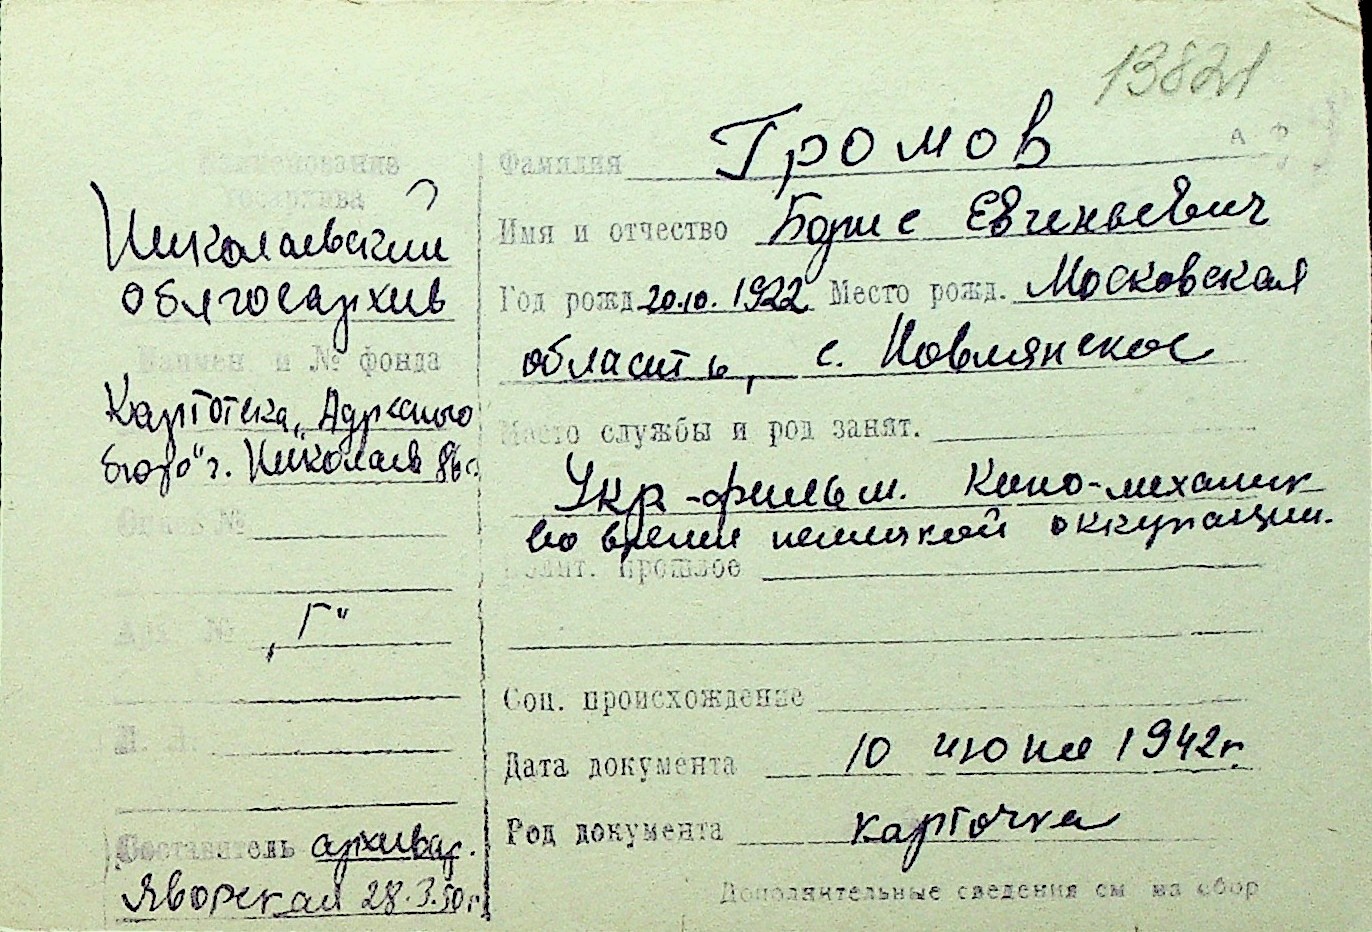 13821
А Ф
Наименование
госархива
Николаевский
облгосархив
Наимен и № фонда
Картотека „Адресного
бюро" г. Николаев
Опись №
Арх. №
„Г"
Составитель архивар.
Яворская 28.3.50г.
Фамилия Громов
Имя и отчество Борис Евгеньевич
Год рожд 20.10.1922 Место рожд. Московская
область, с. Новлянское
Место службы и род занят.
Укр-фильм. Кино-механик
во время немецкой оккупации.
Полит. прошлое
Соц. происхождение
Дата документа 10 июня 1942г.
Род документа карточка
Дополнительные сведения см на обор